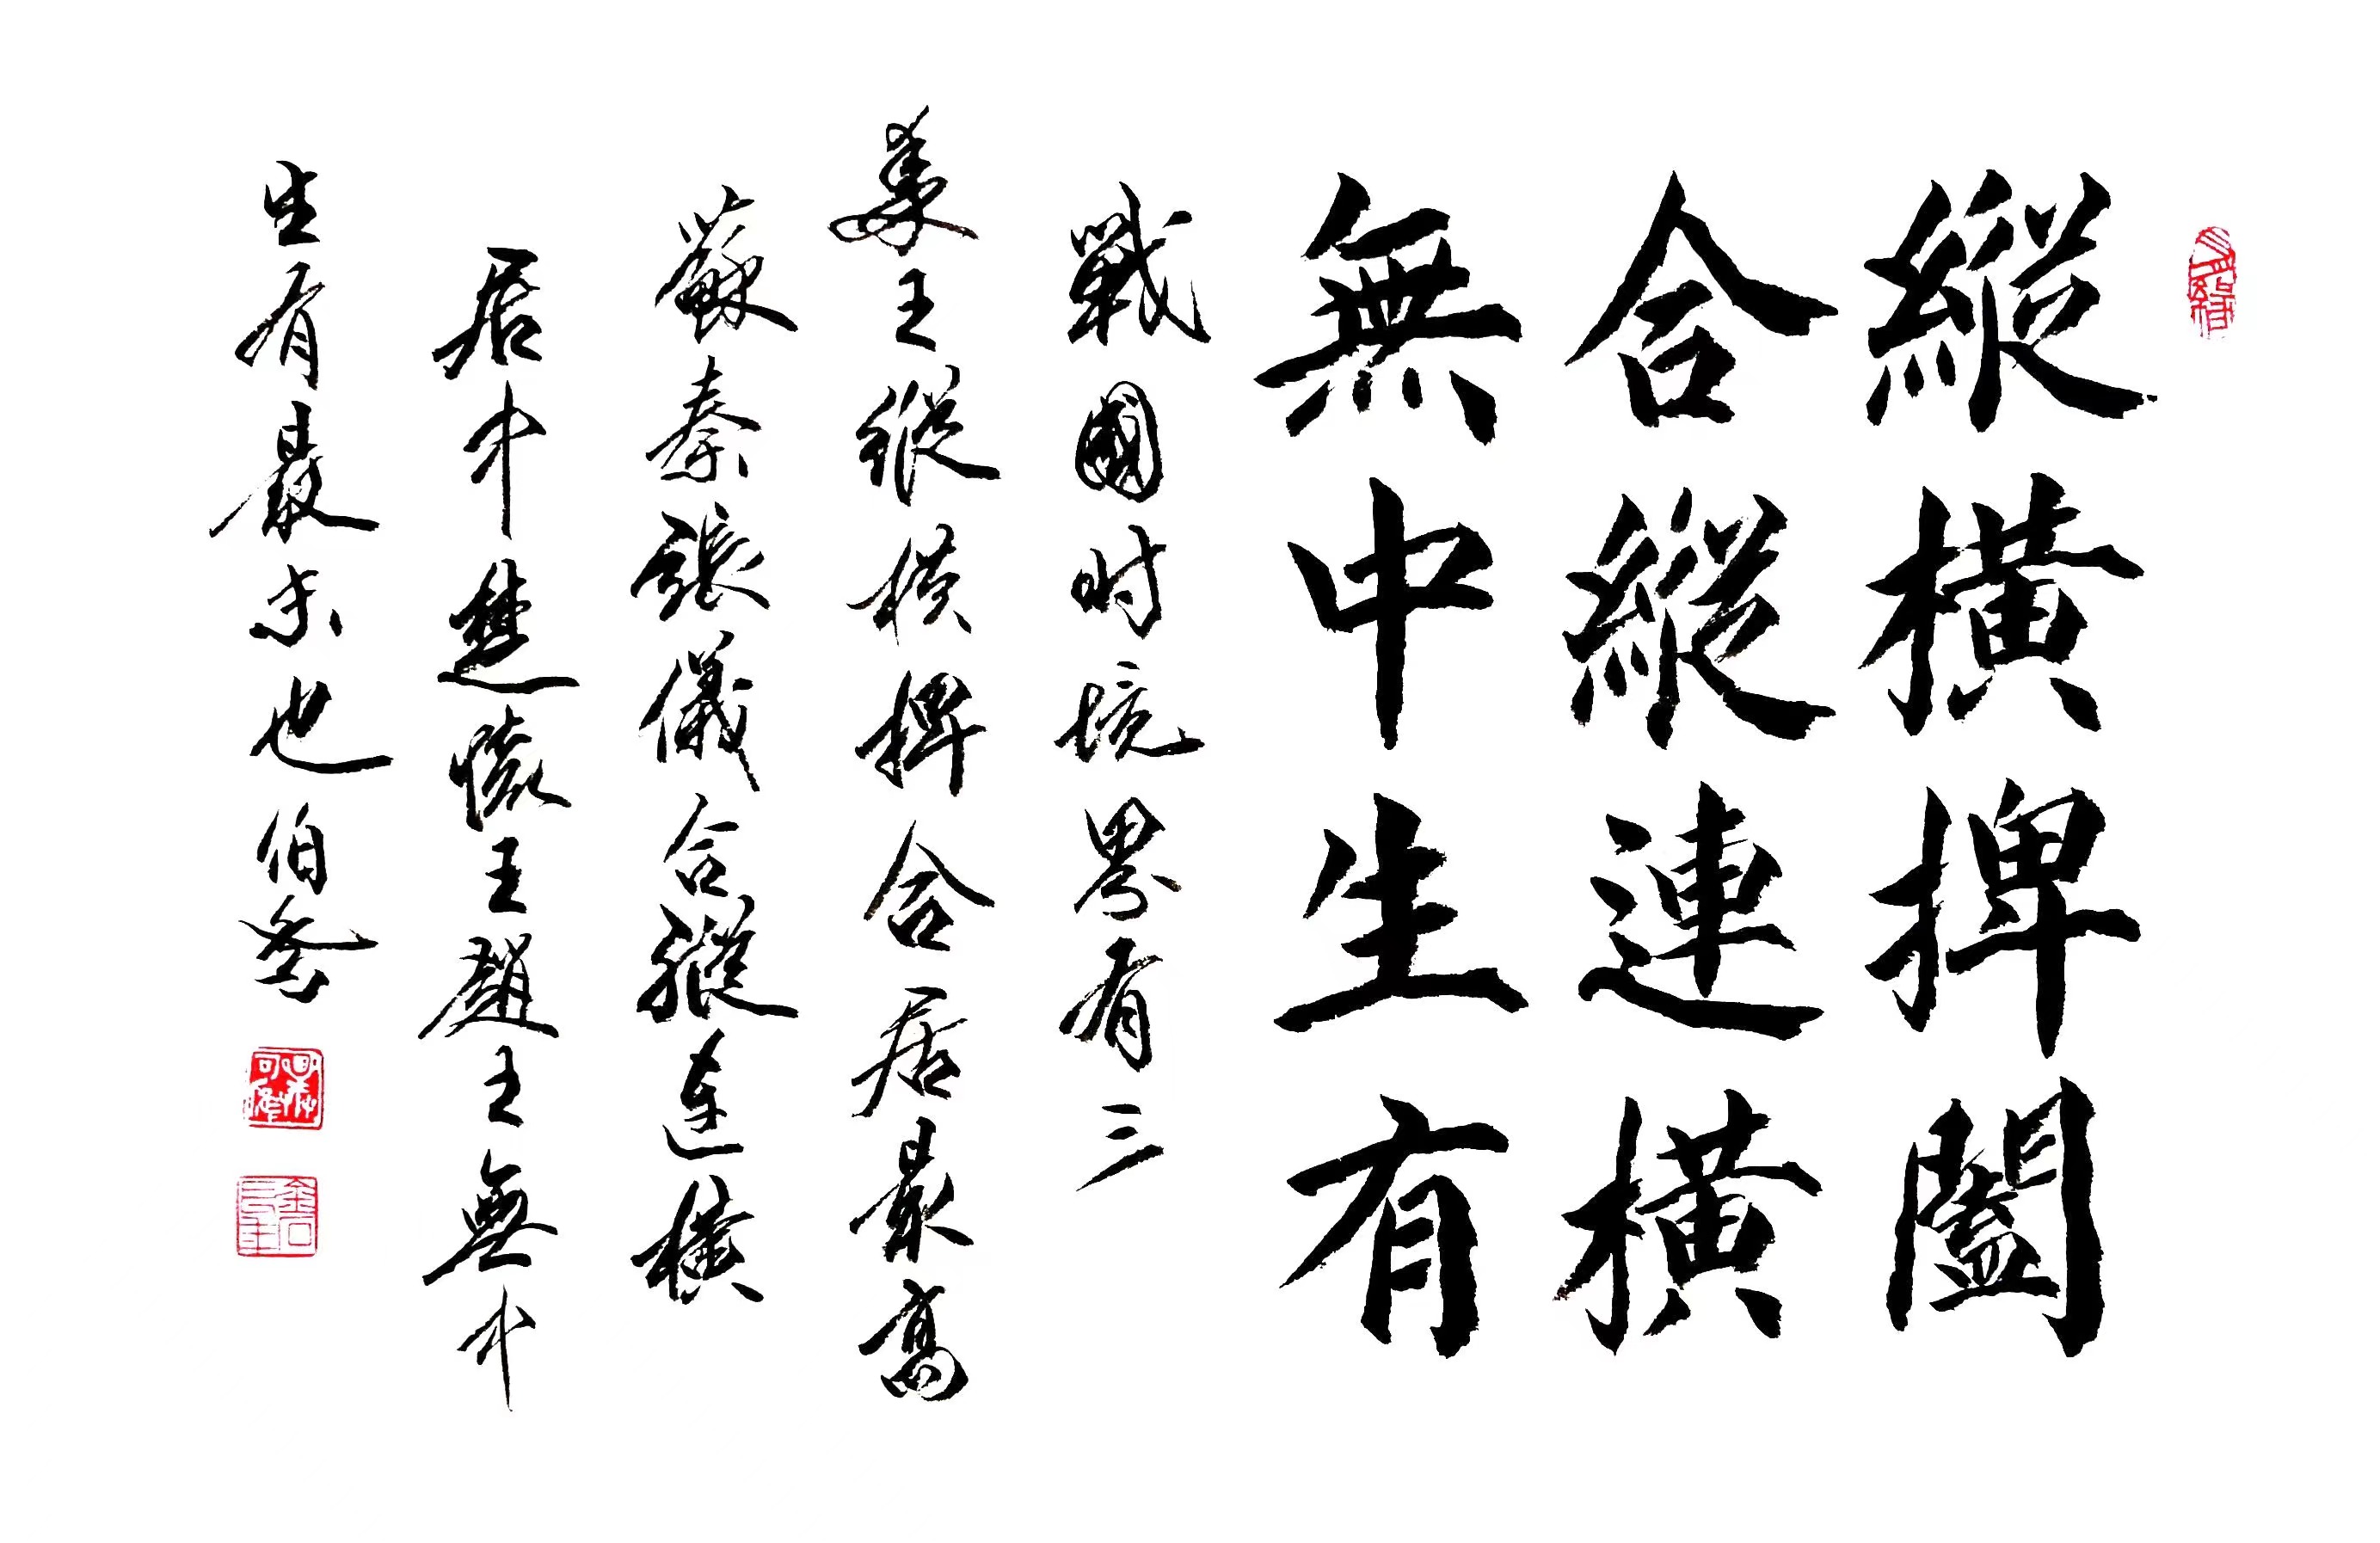 縱橫捭闔
合縱連橫
無中生有
戰國时境界有三
姜王縱横捭合居最高
蘇秦張儀合縱连横
居中楚懷王盟主無中
生有最末也伯